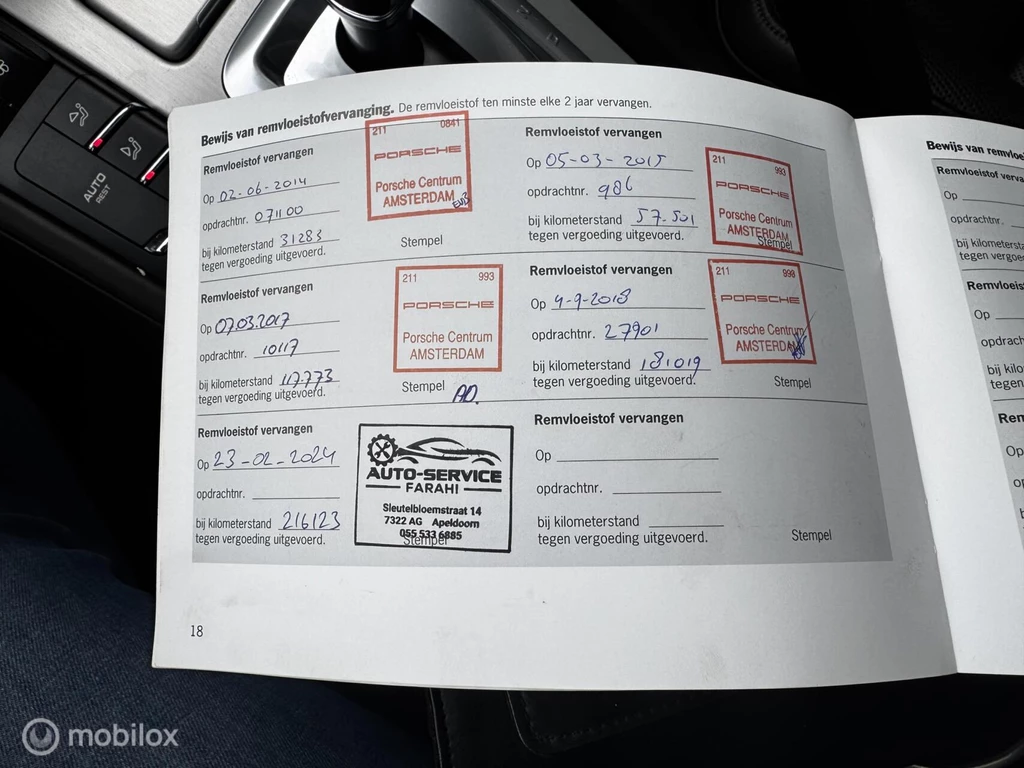 Bewijs van remvloeistofvervanging. De remvloeistof ten minste elke 2 jaar vervangen.
Remvloeistof vervangen
Op 02-06-2014
opdrachtnr. 071100
bij kilometerstand 31283
tegen vergoeding uitgevoerd.
211 0841
PORSCHE
Porsche Centrum
AMSTERDAM
Stempel
Remvloeistof vervangen
Op 05-03-2015
opdrachtnr. 986
bij kilometerstand 57.501
tegen vergoeding uitgevoerd.
211 993
PORSCHE
Porsche Centrum
AMSTERDAM
Stempel
Remvloeistof vervangen
Op 07.03.2017
opdrachtnr. 10117
bij kilometerstand 117.773
tegen vergoeding uitgevoerd.
211 993
PORSCHE
Porsche Centrum
AMSTERDAM
Stempel
AD.
Remvloeistof vervangen
Op 4-9-2018
opdrachtnr. 27901
bij kilometerstand 181019
tegen vergoeding uitgevoerd.
211 990
PORSCHE
Porsche Centrum
AMSTERDAM
Stempel
Remvloeistof vervangen
Op 23-02-2024
opdrachtnr.
bij kilometerstand 216123
tegen vergoeding uitgevoerd.
AUTO-SERVICE
FARAHI
Sleutelbloemstraat 14
7322 AG Apeldoorn
055 533 6885
Stempel
Remvloeistof vervangen
Op
opdrachtnr.
bij kilometerstand
tegen vergoeding uitgevoerd.
Stempel
18
Bewijs van
Op
opdrachtnr.
Op
Op
AUTO
REST
mobilox